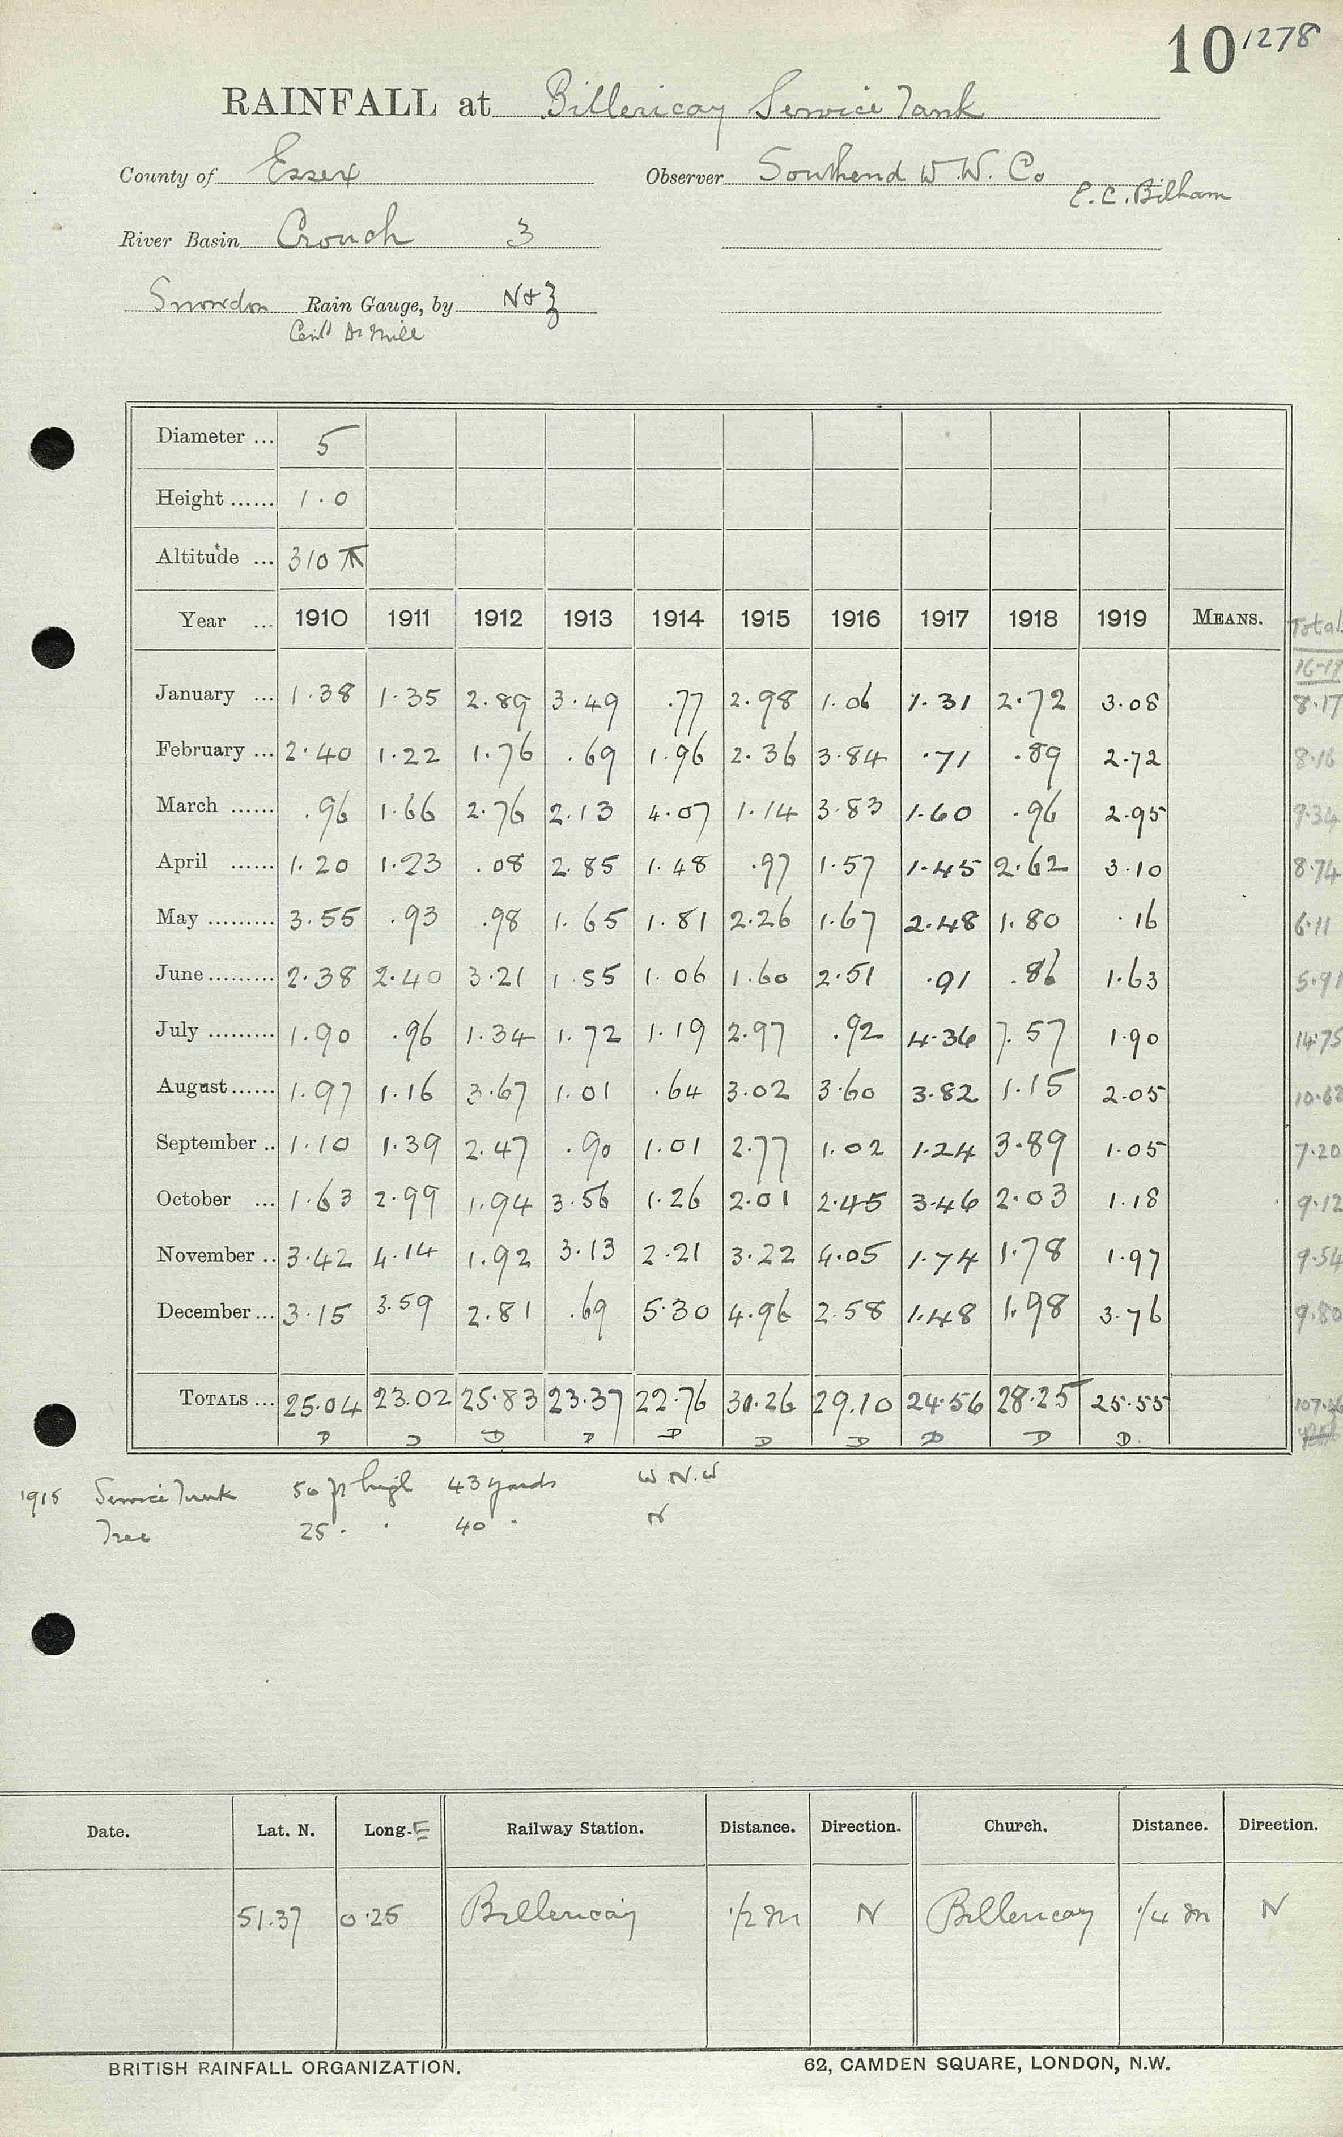 10 1278
RAINFALL at Billericay Service Tank
County of Essex Observer Southend W.W. Co
E.C. Bilham
River Basin Crouch 3
Snowdon Rain Gauge, by N+Z
Cert Dr Mill
Diameter ... 5
Height ...... 1.0
Altitude ... 310
Year ... 1910 1911 1912 1913 1914 1915 1916 1917 1918 1919 MEANS. Total
16-19
January ... 1.38 1.35 2.89 3.49 .77 2.98 1.06 1.31 2.72 3.08 8.17
February ... 2.40 1.22 1.76 .69 1.96 2.36 3.84 .71 .89 2.72 8.16
March ...... .96 1.66 2.76 2.13 4.07 1.14 3.83 1.60 .96 2.95 9.34
April ...... 1.20 1.23 .08 2.85 1.48 .97 1.57 1.45 2.62 3.10 8.74
May ......... 3.55 .93 .98 1.65 1.81 2.26 1.67 2.48 1.80 .16 6.11
June ......... 2.38 2.40 3.21 1.55 1.06 1.60 2.51 .91 .86 1.63 5.91
July ......... 1.90 .96 1.34 1.72 1.19 2.97 .92 4.36 7.57 1.90 14.75
August ...... 1.97 1.16 3.67 1.01 .64 3.02 3.60 3.82 1.15 2.05 10.62
September .. 1.10 1.39 2.47 .90 1.01 2.77 1.02 1.24 3.89 1.05 7.20
October ... 1.63 2.99 1.94 3.56 1.26 2.01 2.45 3.46 2.03 1.18 9.12
November .. 3.42 4.14 1.92 3.13 2.21 3.22 4.05 1.74 1.78 1.97 9.54
December ... 3.15 3.59 2.81 .69 5.30 4.96 2.58 1.48 1.98 3.76 9.80
TOTALS ... 25.04 23.02 25.83 23.37 22.76 30.26 29.10 24.56 28.25 25.55 107.46
D D D D D D D D D D
1915 Service Tank 50 ft high 43 yards W N.W
Tree 25 " " 40 " N
Date. Lat. N. Long. E Railway Station. Distance. Direction. Church. Distance. Direction.
51.37 0.25 Billericay 1/2 m N Billericay 1/4 m N
BRITISH RAINFALL ORGANIZATION. 62, CAMDEN SQUARE, LONDON, N.W.